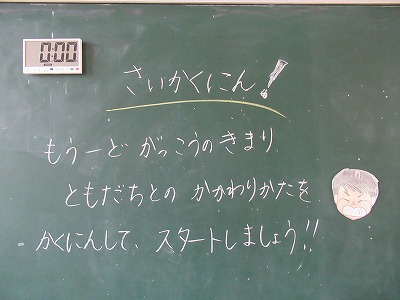 0:00
さいかくにん!
もう一ど がっこうのきまり
ともだちとの かかわりかたを
かくにんして、スタートしましょう!!